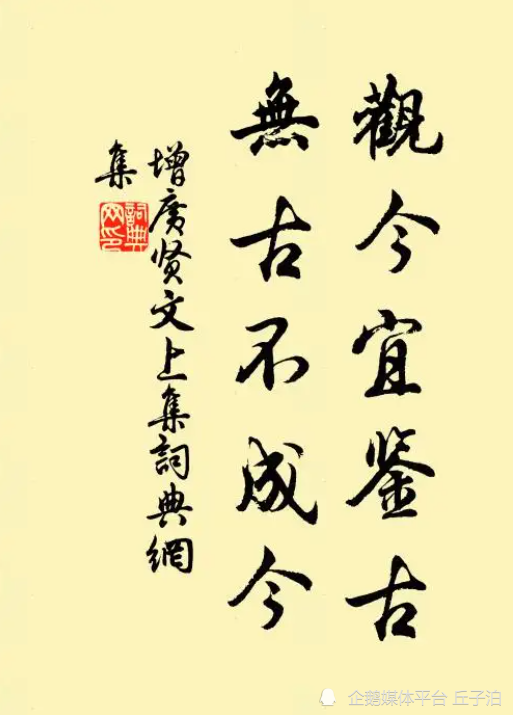 觀今宜鉴古
無古不成今
增廣贤文上集詞典網
集
詞典网印
企鹅媒体平台 丘子泊